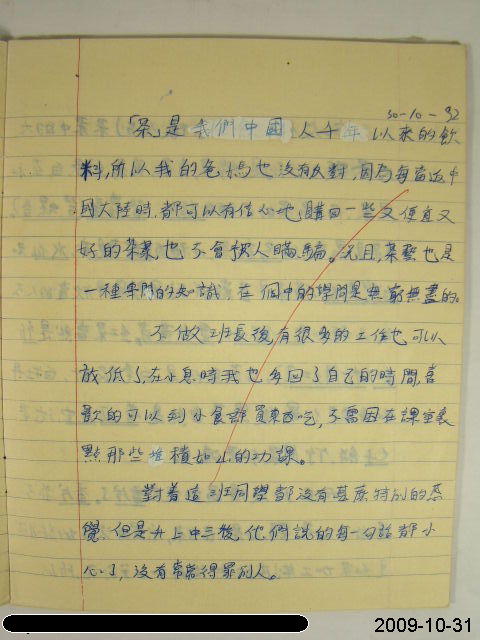 30-10-92
「茶」是我們中國人千年以來的飲
料,所以我的爸媽也沒有反對,因為每當返中
國大陸時,都可以有信心地購回一些又便宜又
好的茶葉,也不會被人瞞騙。况且,茶藝也是
一種專門的知識,在個中的學問是無窮無盡的。
不做班長後,有很多的工作也可以
放低了,在小息時我也多回了自己的時間,喜
歡的可以到小食部買東西吃,不需困在課室裏
點那些堆積如山的功課。
對着這班同學都沒有甚麼特別的感
覺,但是升上中三後,他們說的每一句話都小
心了,沒有常常得罪别人。
2009-10-31